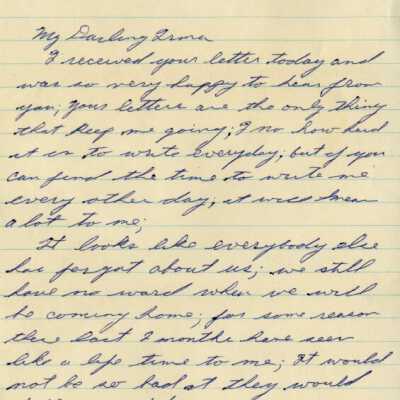 My Darling Irma
I received your letter today and
was so very happy to hear from
you; your letters are the only thing
that keep me going; I no how hard
it is to write everyday; but if you
can find the time to write me
every other day; it will mean
a lot to me;
It looks like everybody else
has forgot about us; we still
have no word when we will
be coming home; for some reason
these last 2 months have seen
like a life time to me; It would
not be so bad if they would